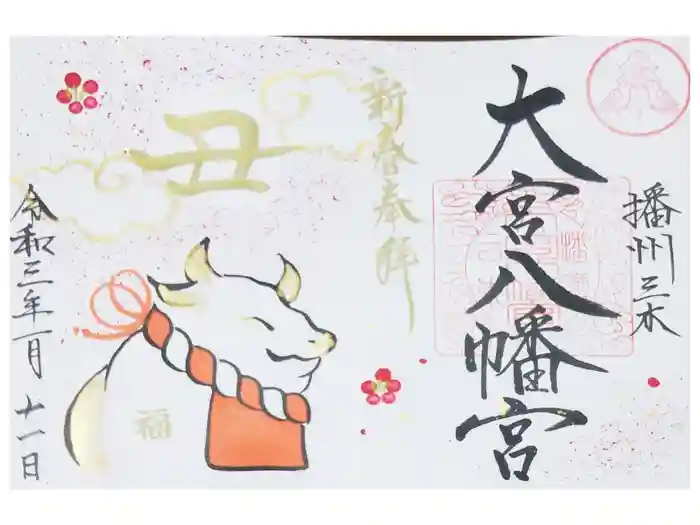 播州三木
大宮八幡宮
新春奉拝
丑
福
令和三年一月十一日